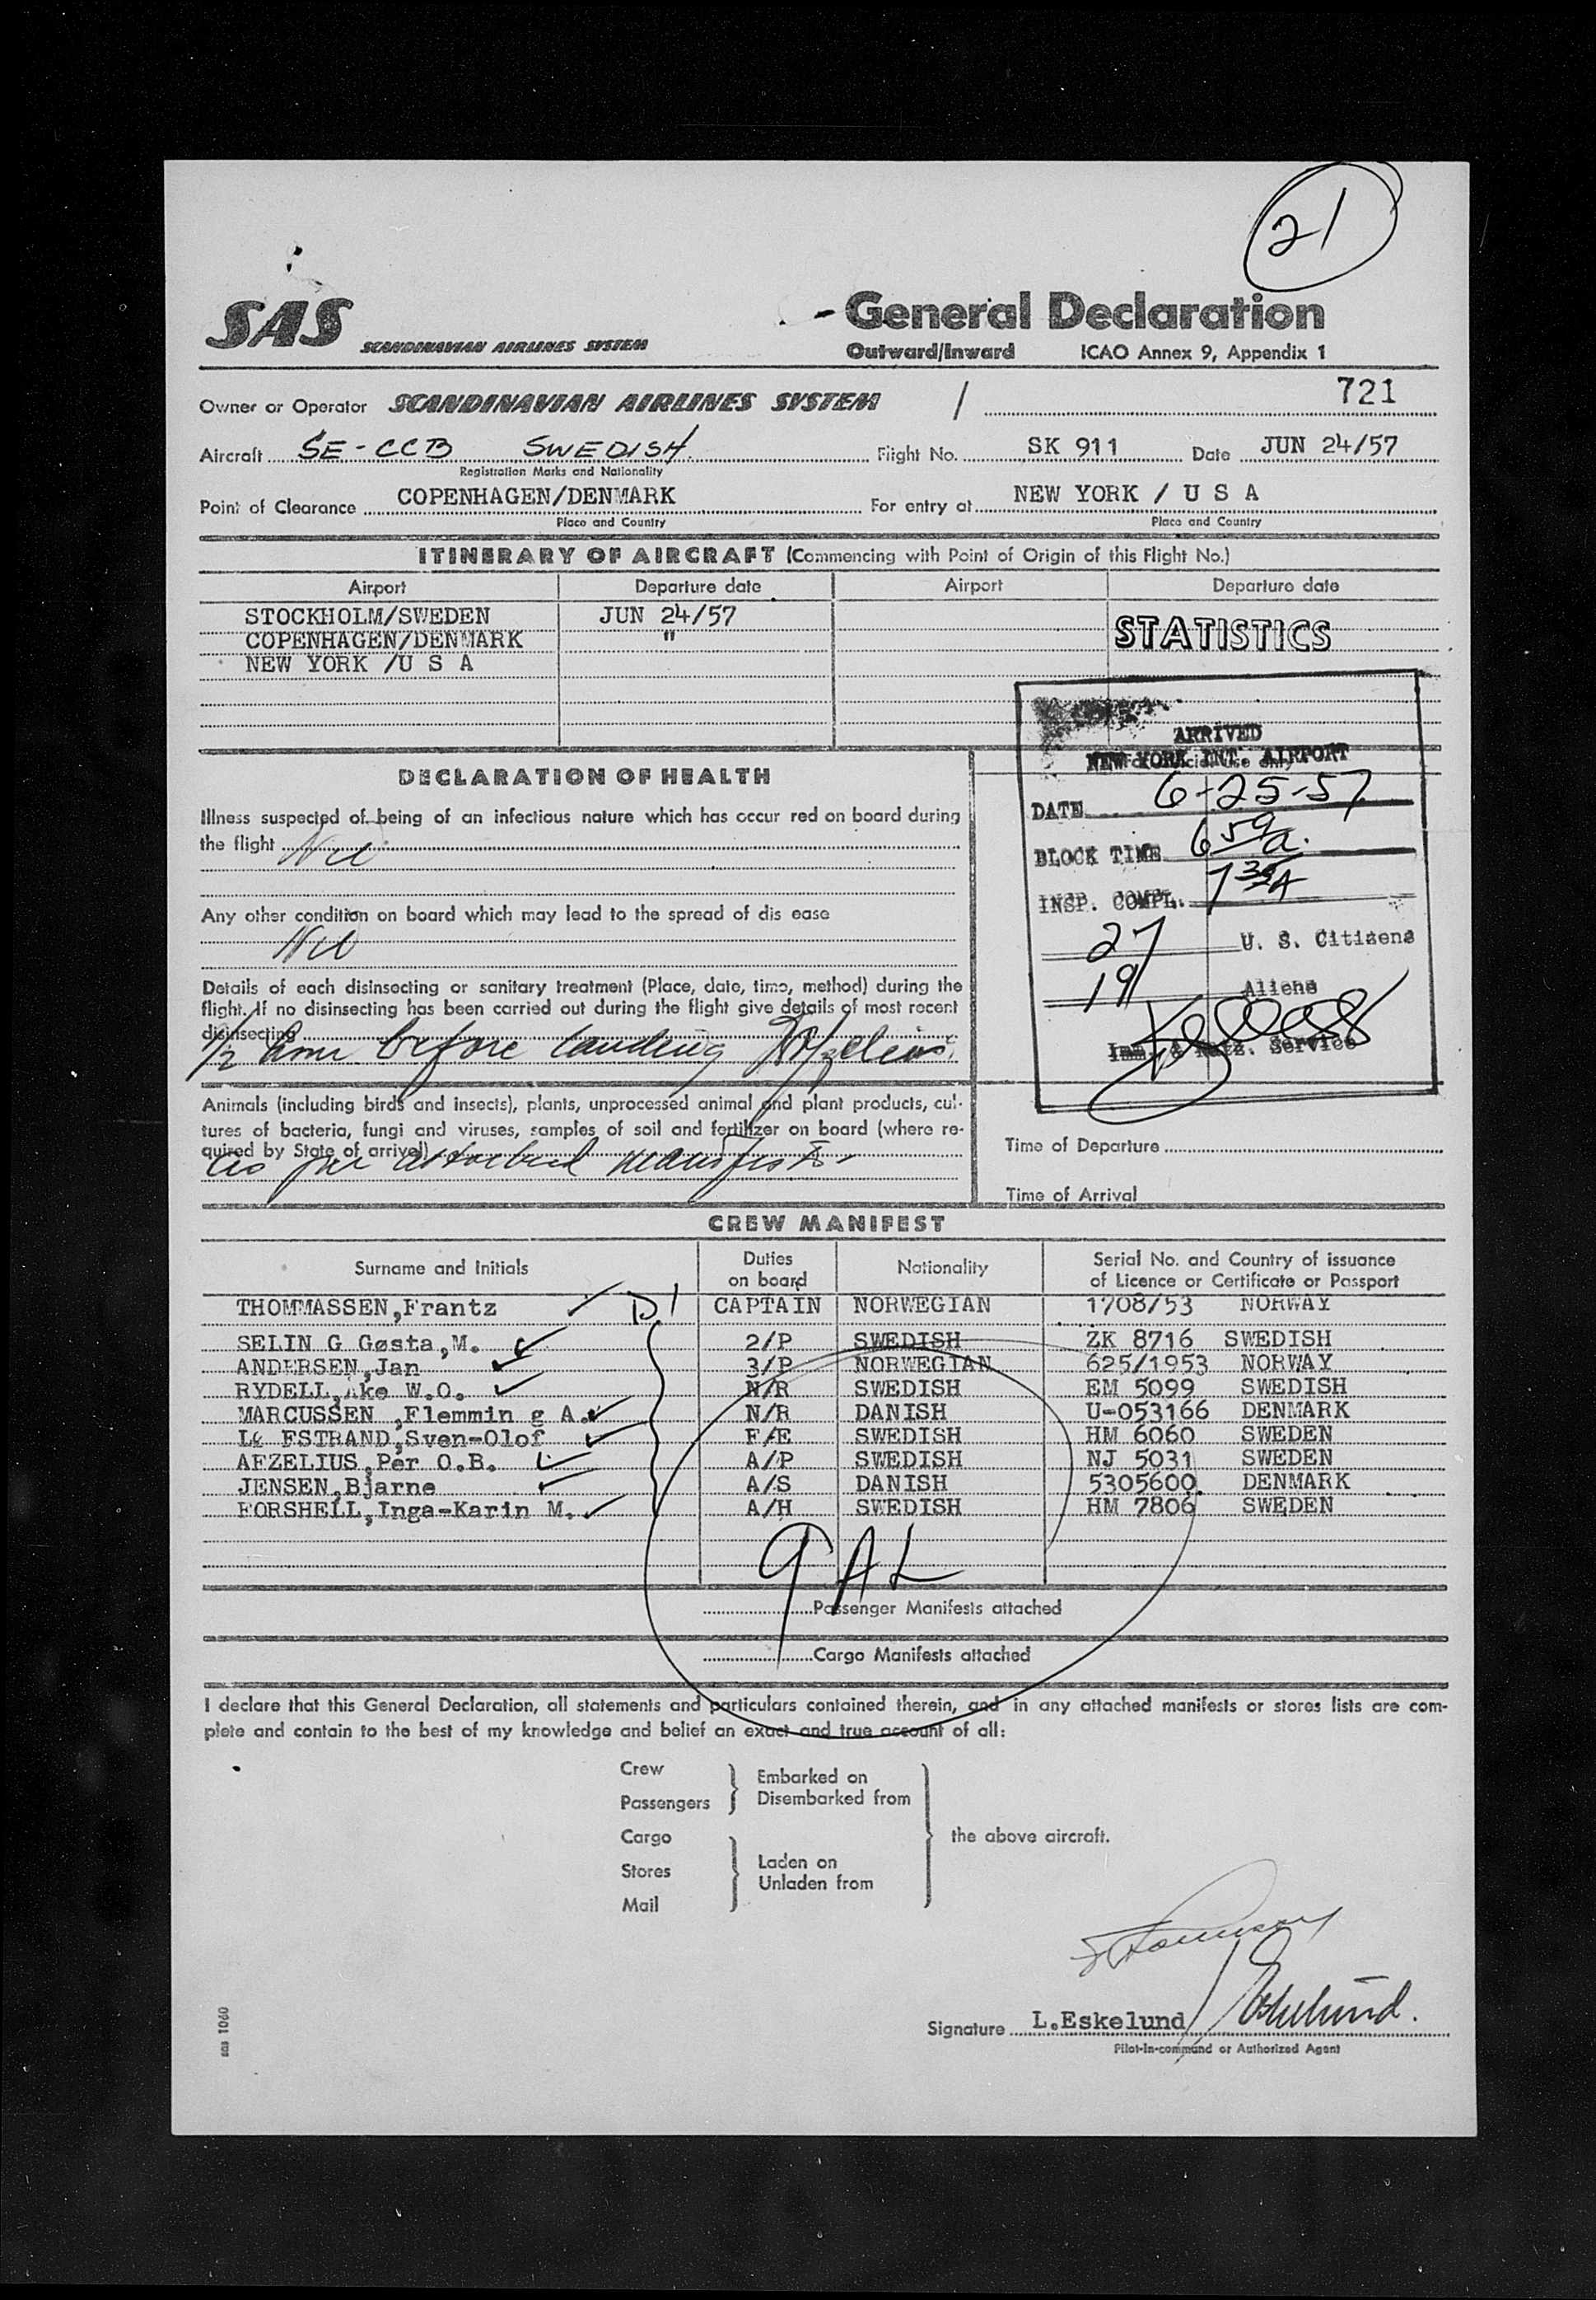 21
SAS SCANDINAVIAN AIRLINES SYSTEM
General Declaration
Outward/Inward ICAO Annex 9, Appendix 1
Owner or Operator SCANDINAVIAN AIRLINES SYSTEM / 721
Aircraft SE-CCB SWEDISH Flight No. SK 911 Date JUN 24/57
Registration Marks and Nationality
Point of Clearance COPENHAGEN/DENMARK For entry at NEW YORK / U S A
Place and Country Place and Country
ITINERARY OF AIRCRAFT (Commencing with Point of Origin of this Flight No.)
Airport Departure date Airport Departure date
STOCKHOLM/SWEDEN JUN 24/57
COPENHAGEN/DENMARK "
STATISTICS
NEW YORK /U S A
ARRIVED
NEW YORK INT. AIRPORT
DATE 6-25-57
BLOCK TIME 6 59 a.
INSP. COMPL. 7 35 A
27 U. S. Citizens
19 Aliens
Imm. & Natz. Service
DECLARATION OF HEALTH
Illness suspected of being of an infectious nature which has occur red on board during
the flight Nil
Any other condition on board which may lead to the spread of dis ease
Nil
Details of each disinsecting or sanitary treatment (Place, date, time, method) during the
flight. If no disinsecting has been carried out during the flight give details of most recent
disinsecting
1/2 hour before landing
Animals (including birds and insects), plants, unprocessed animal and plant products, cul-
tures of bacteria, fungi and viruses, samples of soil and fertilizer on board (where re-
quired by State of arrival)
as per attached manifests
Time of Departure
Time of Arrival
CREW MANIFEST
Surname and Initials Duties on board Nationality Serial No. and Country of issuance of Licence or Certificate or Passport
THOMMASSEN,Frantz D1 CAPTAIN NORWEGIAN 1708/53 NORWAY
SELIN G Gøsta,M. 2/P SWEDISH ZK 8716 SWEDISH
ANDERSEN,Jan 3/P NORWEGIAN 625/1953 NORWAY
RYDELL,Ake W.O. N/R SWEDISH EM 5099 SWEDISH
MARCUSSEN ,Flemmin g A. N/R DANISH U-053166 DENMARK
FSTRAND,Sven-Olof F/E SWEDISH HM 6060 SWEDEN
AFZELIUS,Per O.B. A/P SWEDISH NJ 5031 SWEDEN
JENSEN,Bjarne A/S DANISH 5305600. DENMARK
FORSHELL,Inga-Karin M. A/H SWEDISH HM 7806 SWEDEN
9 AL
Passenger Manifests attached
Cargo Manifests attached
I declare that this General Declaration, all statements and particulars contained therein, and in any attached manifests or stores lists are com-
plete and contain to the best of my knowledge and belief an exact and true account of all:
Crew
Passengers
Embarked on
Disembarked from
Cargo
Stores
Mail
Laden on
Unladen from
the above aircraft.
Signature L.Eskelund / Eskelund.
Pilot-in-command or Authorized Agent
sas 1060